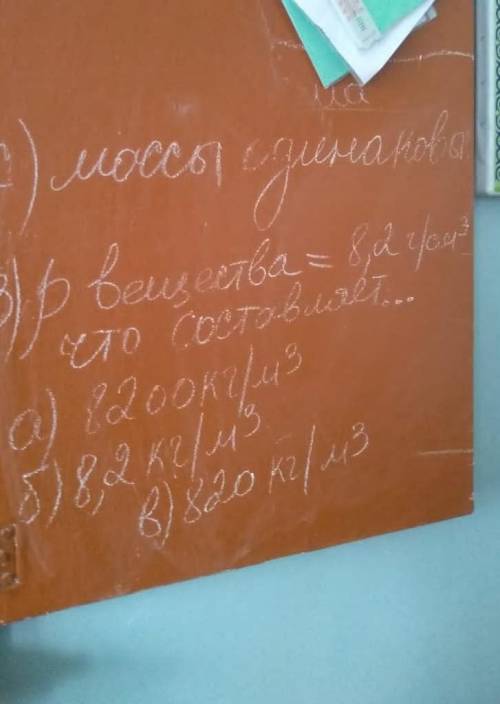 ) массы одинаковы
3) ρ вещества = 8,2 г/см³
что составляет...
а) 8200кг/м³
б) 8,2 кг/м³
в) 820 кг/м³